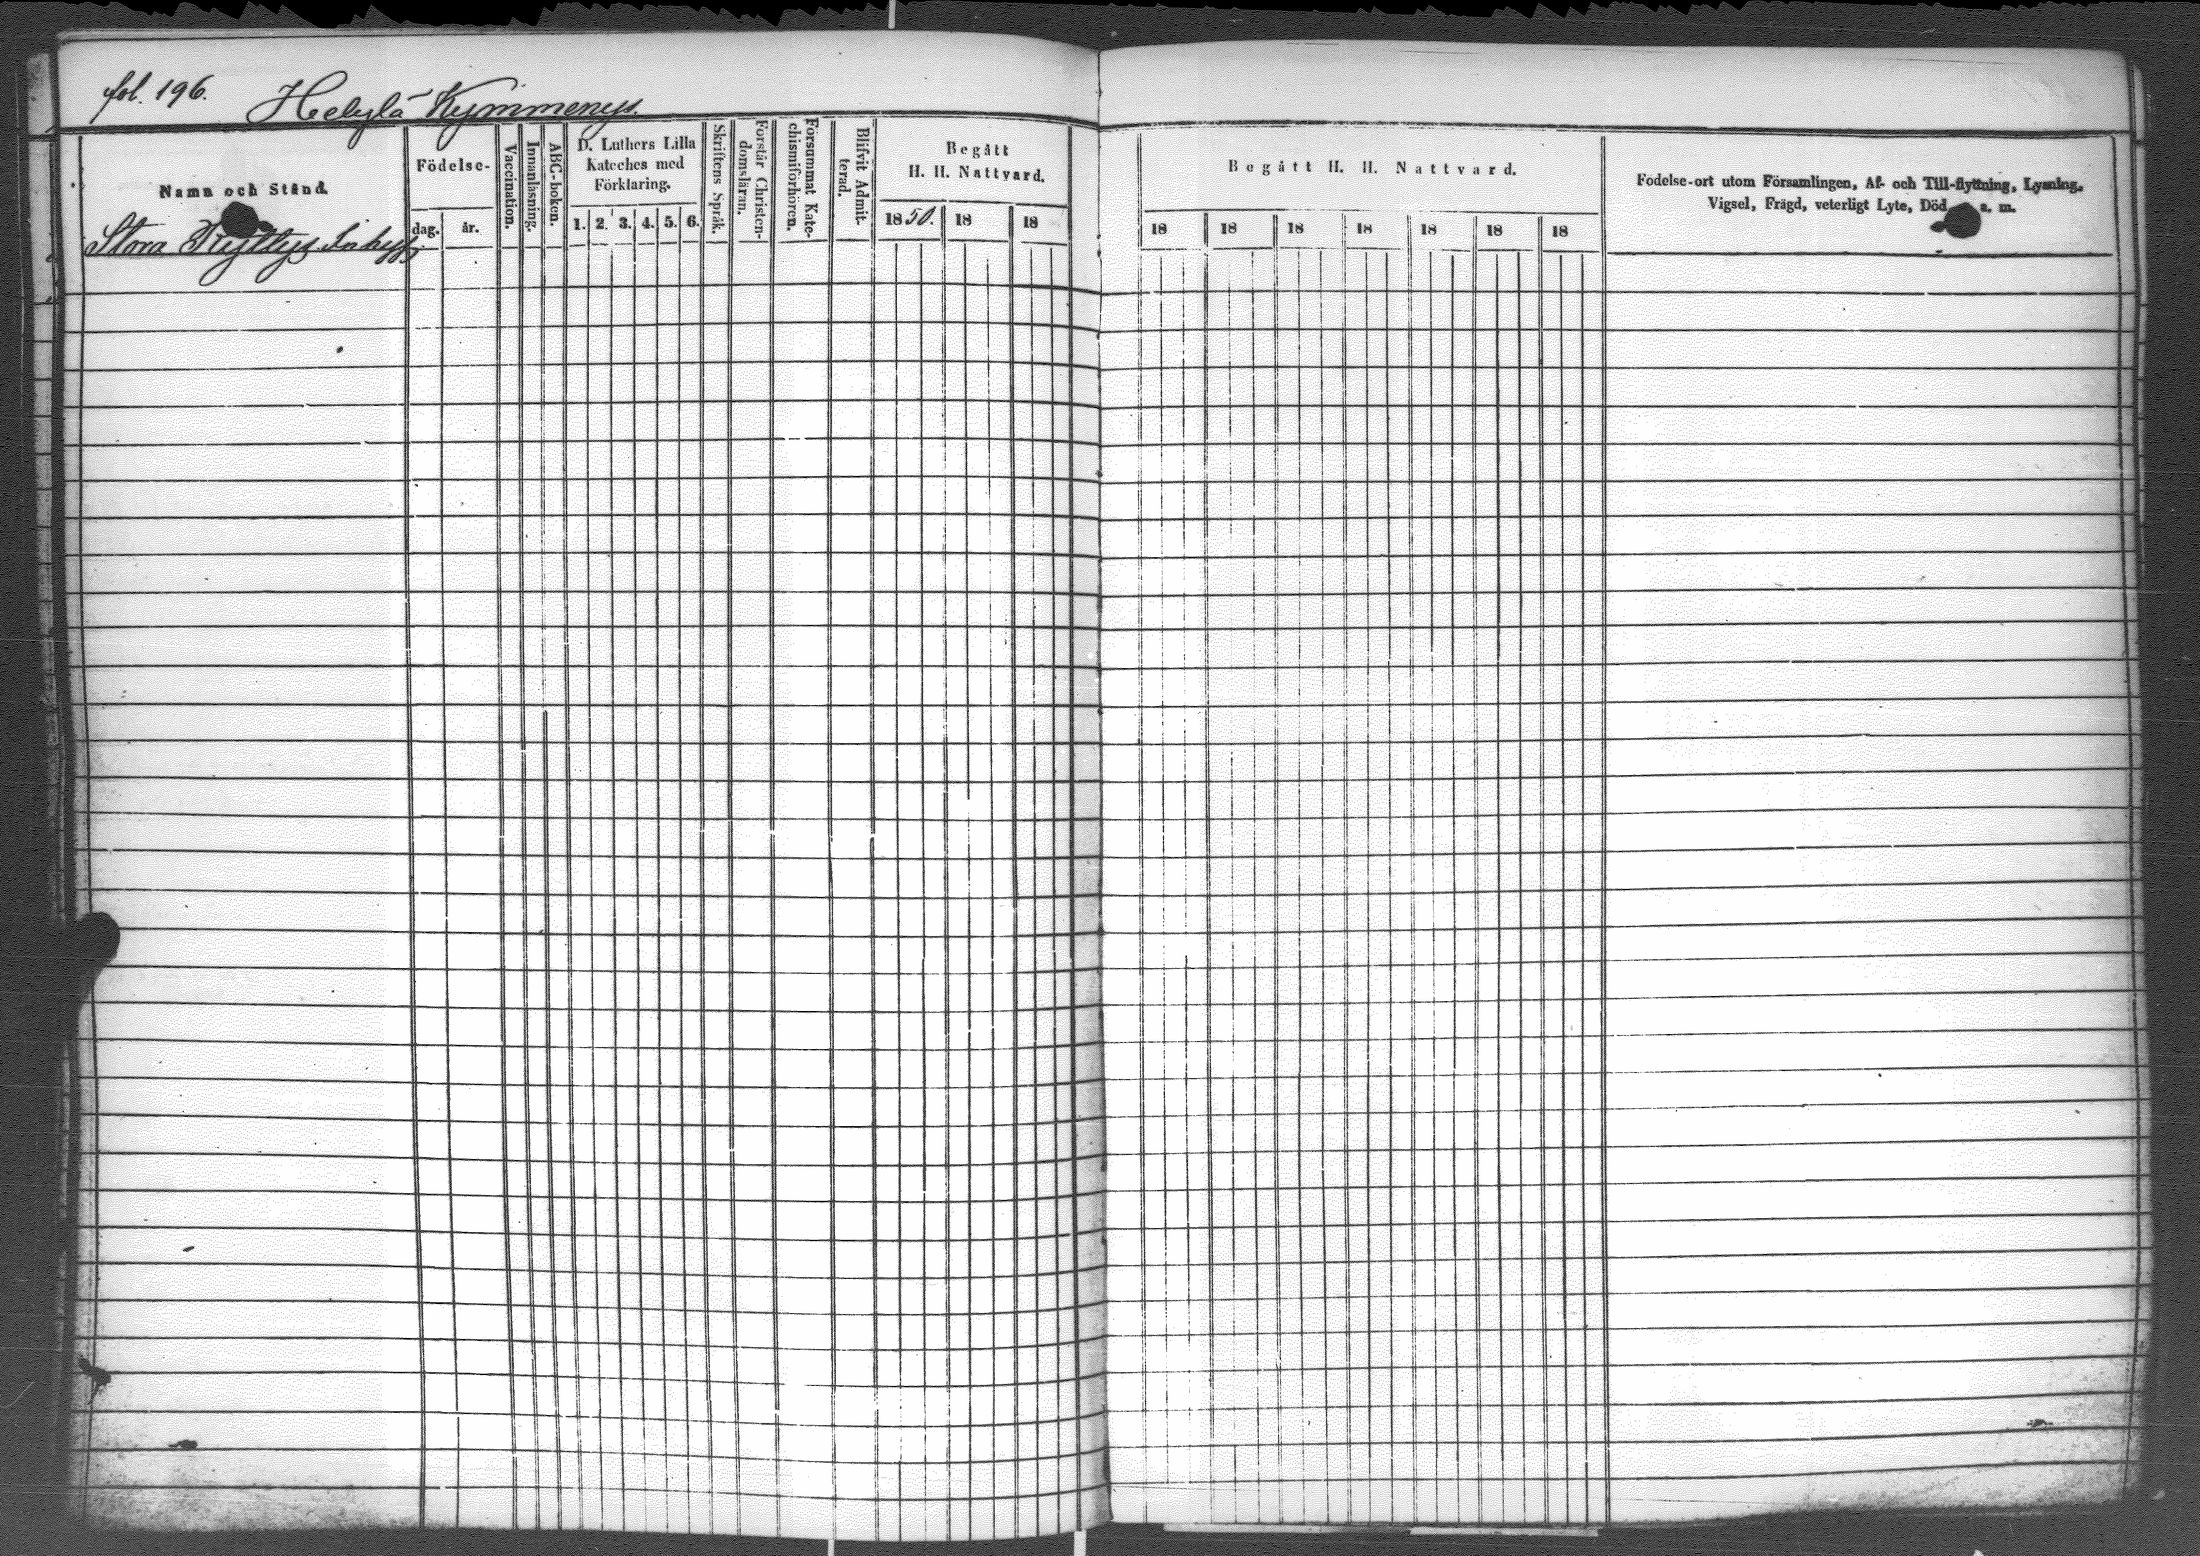 fol. 196. Helylä Kymmenys.
Namn och Stånd.
Stora Inhyss
Födelse-
dag. år.
Vaccination.
Innanläsning.
ABC-boken.
D. Luthers Lilla
Kateches med
Förklaring.
1. 2. 3. 4. 5. 6.
Skriftens Språk.
Förstår Christen-
domsläran.
Försummat Kate-
chismiförhören.
Blifvit Admit-
terad.
Begått
H. H. Nattvard.
1850. 18 18
Begått H. H. Nattvard.
18 18 18 18 18 18 18
Födelse-ort utom Församlingen, Af- och Till-flyttning, Lysning,
Vigsel, Frägd, veterligt Lyte, Död s. m.